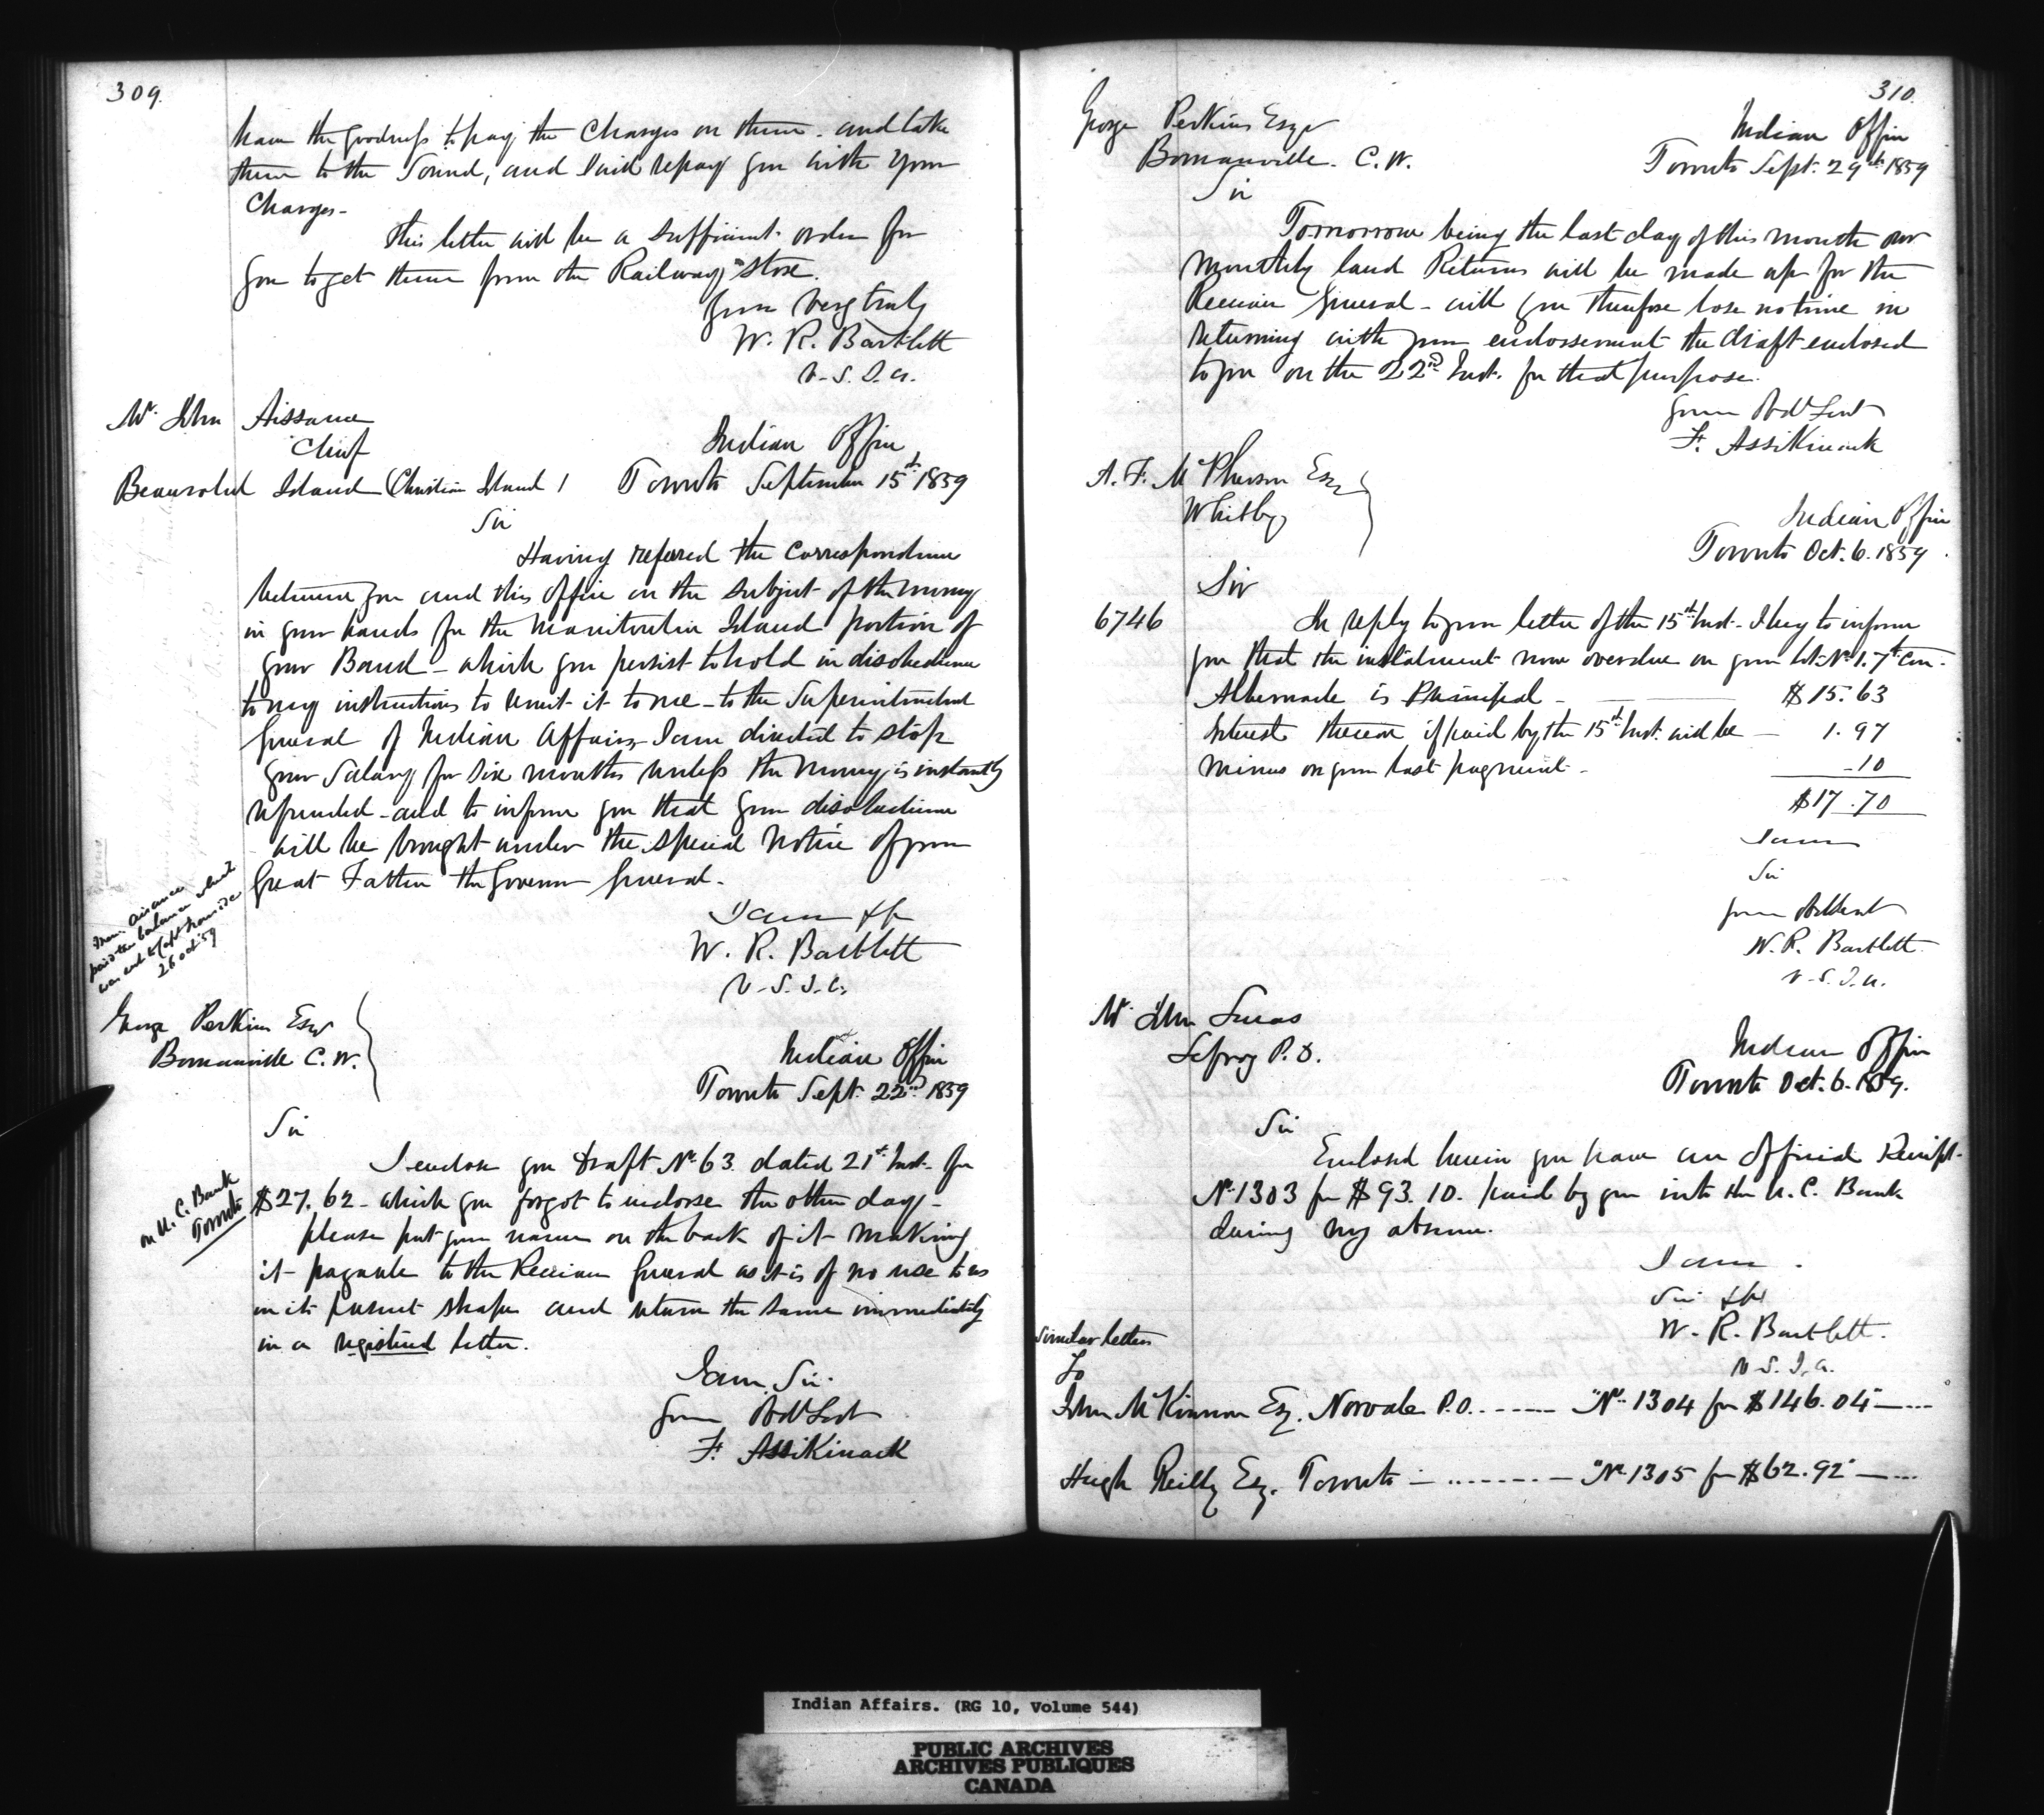 309.
have the goodness to pay the Charges on them. and take
them to the Sound, and I will repay you with your
Charges-
This letter will be a sufficient order for
you to get them from the Railway Store.
Yours very truly
W. R. Bartlett
V. S. I. A.
Mr. John Aissance
Chief
Beausoleil Island (Christian Island)
Indian Office
Toronto September 15th 1859
Sir
Having referred the Correspondence
between you and this Office on the subject of the money
in your hands for the Manitoulin Island portion of
your Band - which you persist to hold in disobedience
to my instructions to remit it to me - to the Superintendent
General of Indian Affairs, I am directed to stop
your Salary for Six months unless the money is instantly
refunded - and to inform you that your disobedience
will be brought under the special notice of your
Great Father the Governor General.
I am &c
W. R. Bartlett
V. S. I. A.
Aisance
paid the balance which
was sent to Capt Ironside
26 Oct '59
George Perkins Esqr
Bomanville C. W.
Indian Office
Toronto Sept. 22nd 1859
Sir
I enclose you Draft No. 63 dated 21st Inst. for
on U. C. Bank
Toronto
$27.62 - which you forgot to indorse the other day -
please put your name on the back of it making
it payable to the Receiver General as it is of no use to us
in its present shape and return the same immediately
in a registered letter.
I am, Sir.
Your Obdt Servt
F. Assikinack
310.
George Perkins Esqr
Bomanville. C. W.
Indian Office
Toronto Sept. 29th 1859
Sir
Tomorrow being the last day of this month our
monthly land Returns will be made up for the
Receiver General - will you therefore lose no time in
returning with your endorsement the draft enclosed
to you on the 22nd Inst. for that purpose.
Your Obdt Servt
F. Assikinack
A. F. McPherson Esqr
Whitby
Indian Office
Toronto Oct. 6. 1859
Sir
6746
In reply to your letter of the 15th Inst. I beg to inform
you that the instalment now overdue on your lot No 1. 7th Con.
Albemarle is Principal - $15.63
Interest thereon if paid by the 15th Inst. will be - 1.97
minus on your last payment - -10
$17.70
I am
Sir
Your Obt Servt
W. R. Bartlett
V. S. I. A.
Mr John Lucas
Lefroy P. O.
Indian Office
Toronto Oct. 6. 1859.
Sir
Enclosed herein you have an official Receipt
No 1303 for $93.10. paid by you into the U. C. Bank
during my absence.
I am.
Sir &c
W. R. Bartlett.
V. S. I. A.
Similar letters
To
John McKinnon Esq. Norvale P.O. ------ "No 1304 for $146.04 ----
Hugh Reilly Esq. Toronto - ........ - "No 1305 for $62.92 ----
Indian Affairs. (RG 10, Volume 544)
PUBLIC ARCHIVES
ARCHIVES PUBLIQUES
CANADA